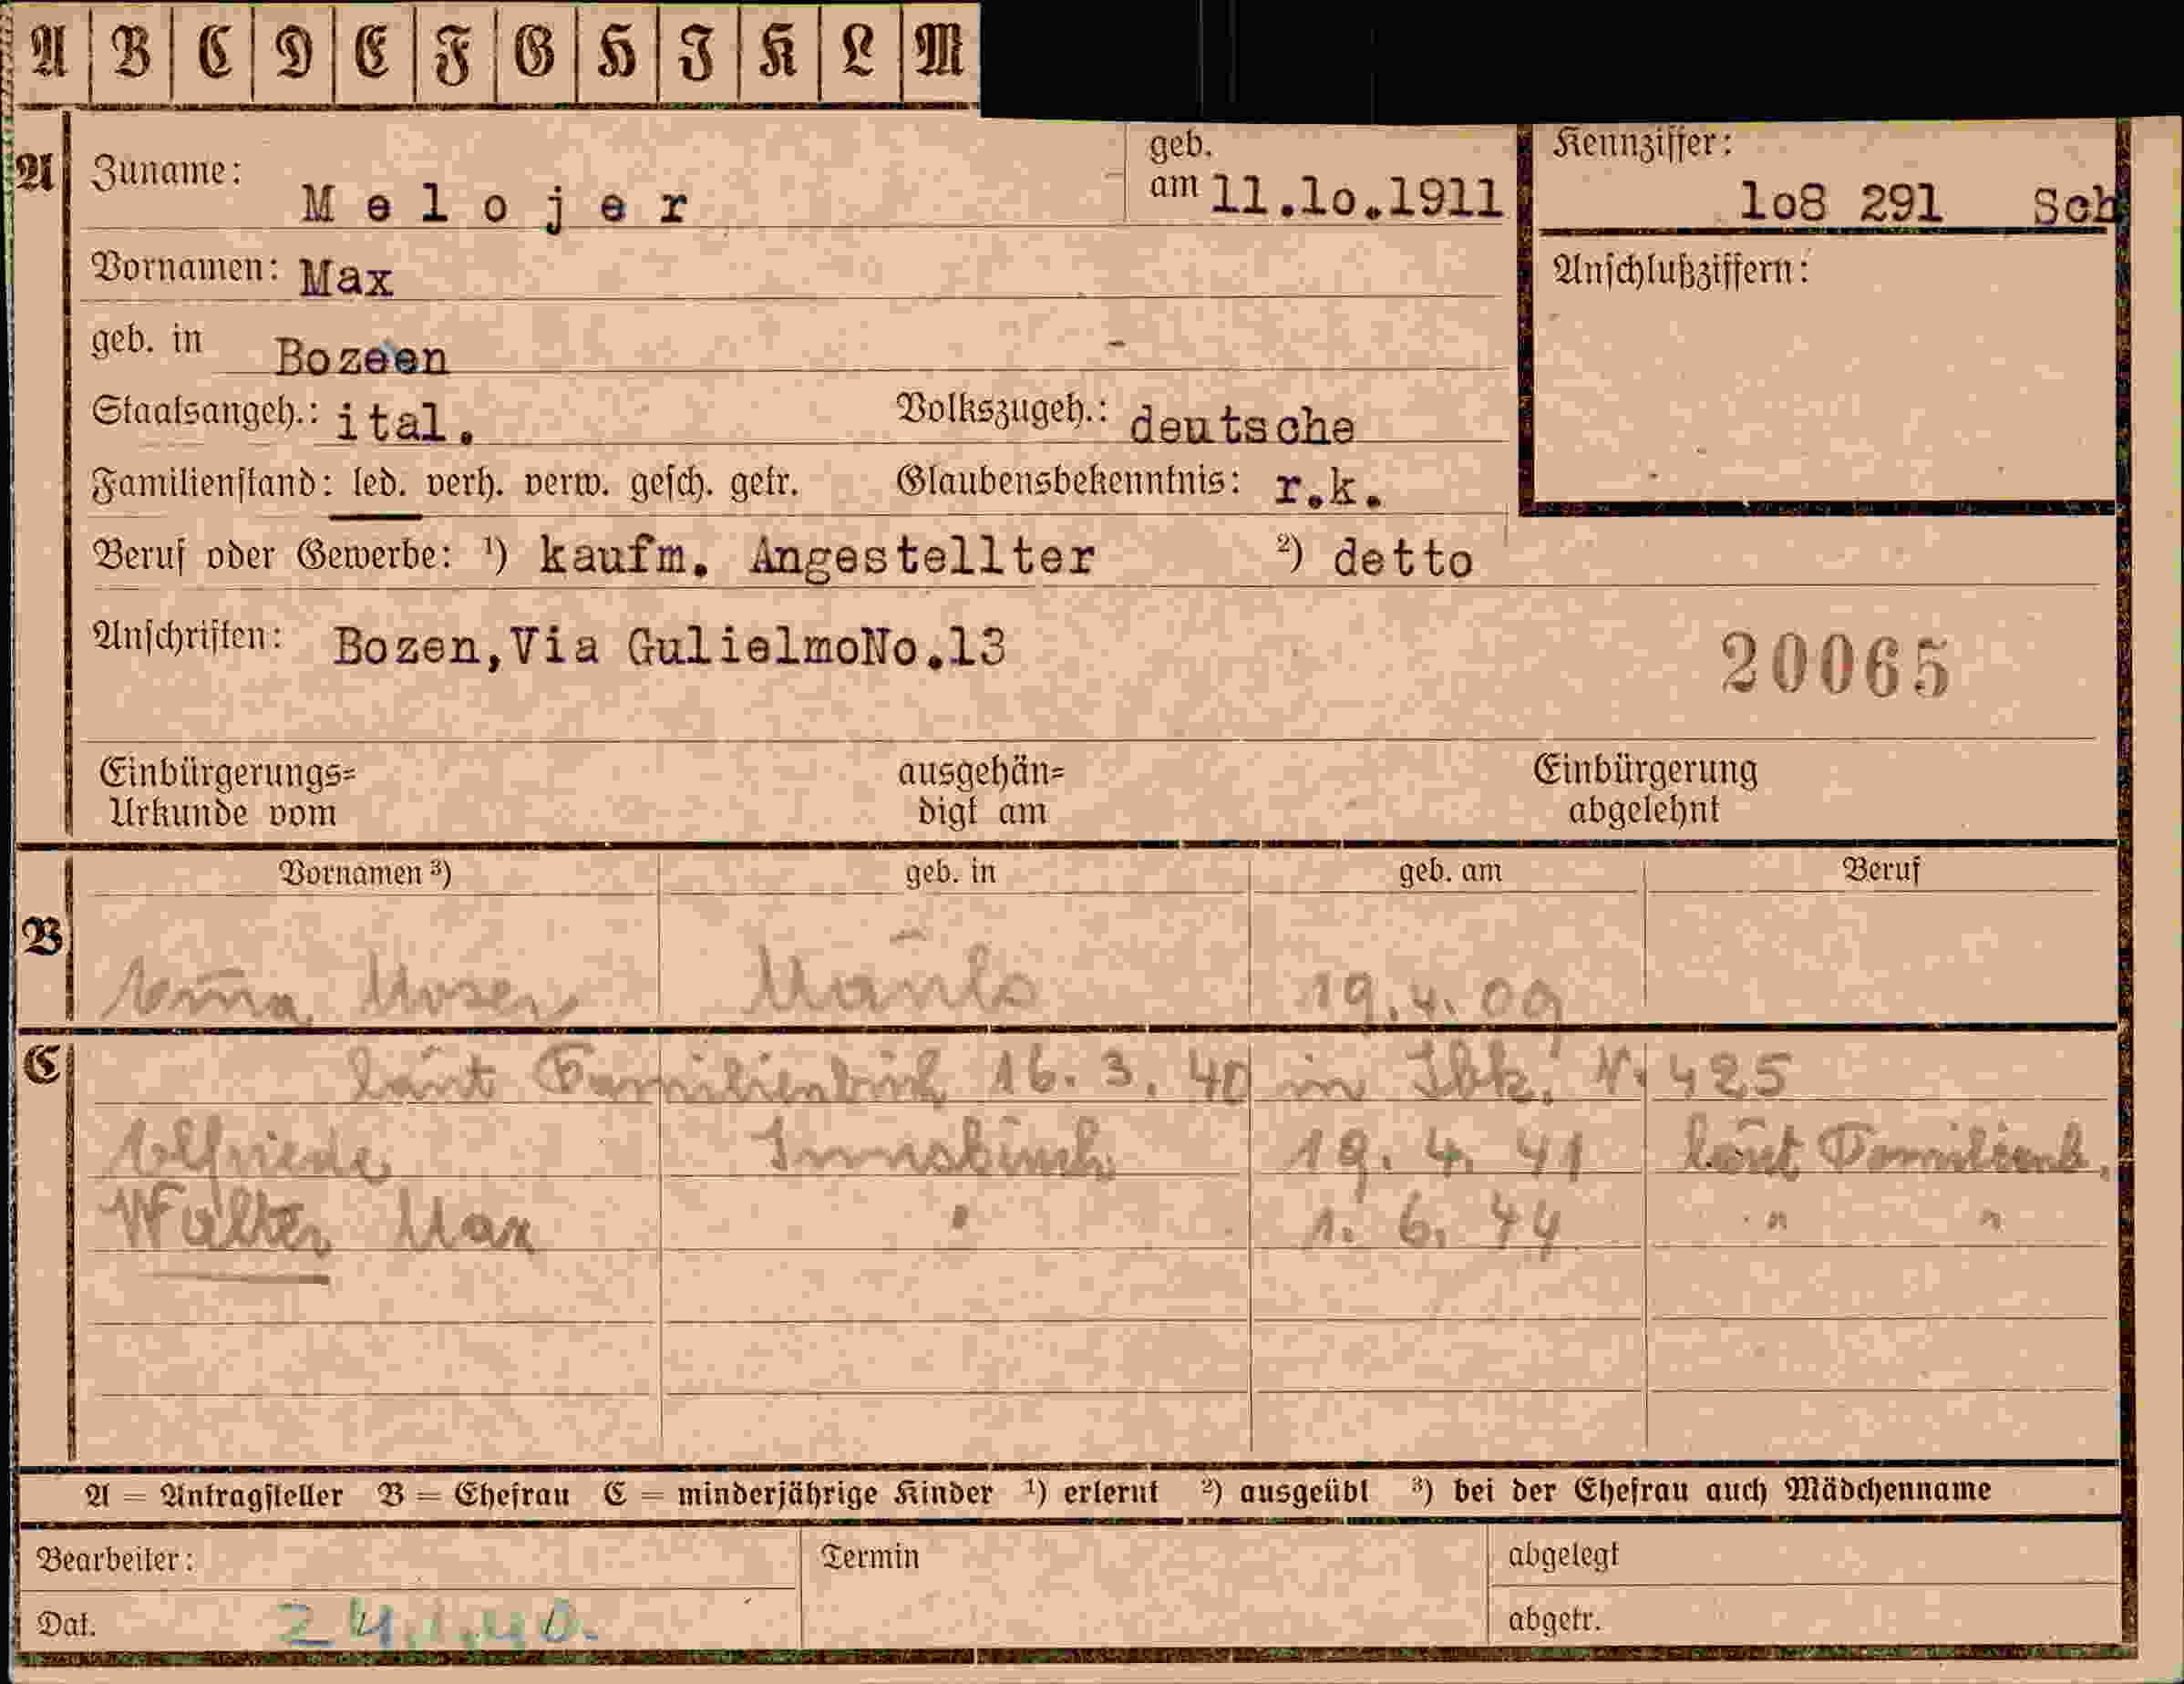 A B C D E F G H I K L M
A Zuname: Melojer geb. am 11.10.1911 Kennziffer: 108 291 Sch
Vornamen: Max Anschlußziffern:
geb. in Bozeen -
Staatsangeh.: ital. Volkszugeh.: deutsche
Familienstand: led. verh. verw. gesch. getr. Glaubensbekenntnis: r.k.
Beruf oder Gewerbe: ¹) kaufm. Angestellter ²) detto
Anschriften: Bozen,Via GulielmoNo.13 20065
Einbürgerungs= ausgehän= Einbürgerung
Urkunde vom digt am abgelehnt
Vornamen ³) geb. in geb. am Beruf
B Anna Moser 19.4.09
C laut Familienbuch 16. 3. 40 in Ibk. Nr 425
Elfriede Innsbruck 19. 4. 41 laut Familienb.
Walter Max " 1. 6. 44 " "
A = Antragsteller B = Ehefrau C = minderjährige Kinder ¹) erlernt ²) ausgeübt ³) bei der Ehefrau auch Mädchenname
Bearbeiter: Termin abgelegt
Dat. abgetr.